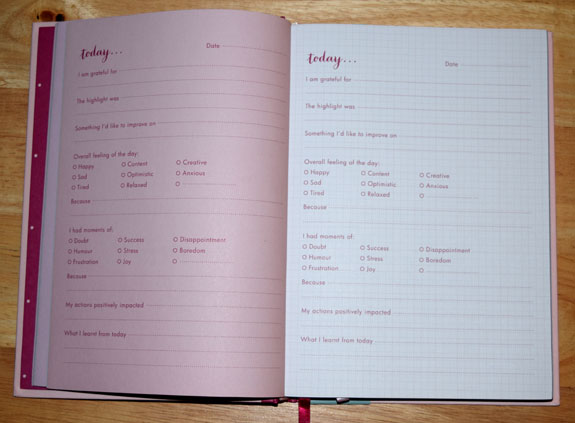 today...
Date
I am grateful for
The highlight was
Something I'd like to improve on
Overall feeling of the day:
Happy Content Creative
Sad Optimistic Anxious
Tired Relaxed
Because
I had moments of:
Doubt Success Disappointment
Humour Stress Boredom
Frustration Joy
Because
My actions positively impacted
What I learnt from today
today...
Date
I am grateful for
The highlight was
Something I'd like to improve on
Overall feeling of the day:
Happy Content Creative
Sad Optimistic Anxious
Tired Relaxed
Because
I had moments of:
Doubt Success Disappointment
Humour Stress Boredom
Frustration Joy
Because
My actions positively impacted
What I learnt from today